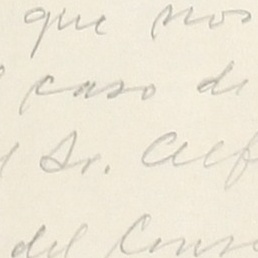 que nos
caso de
Sr. Alf
del Cons